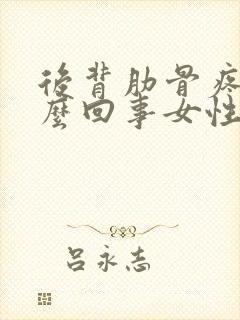 後背肋骨疼
麼回事女性
呂永志